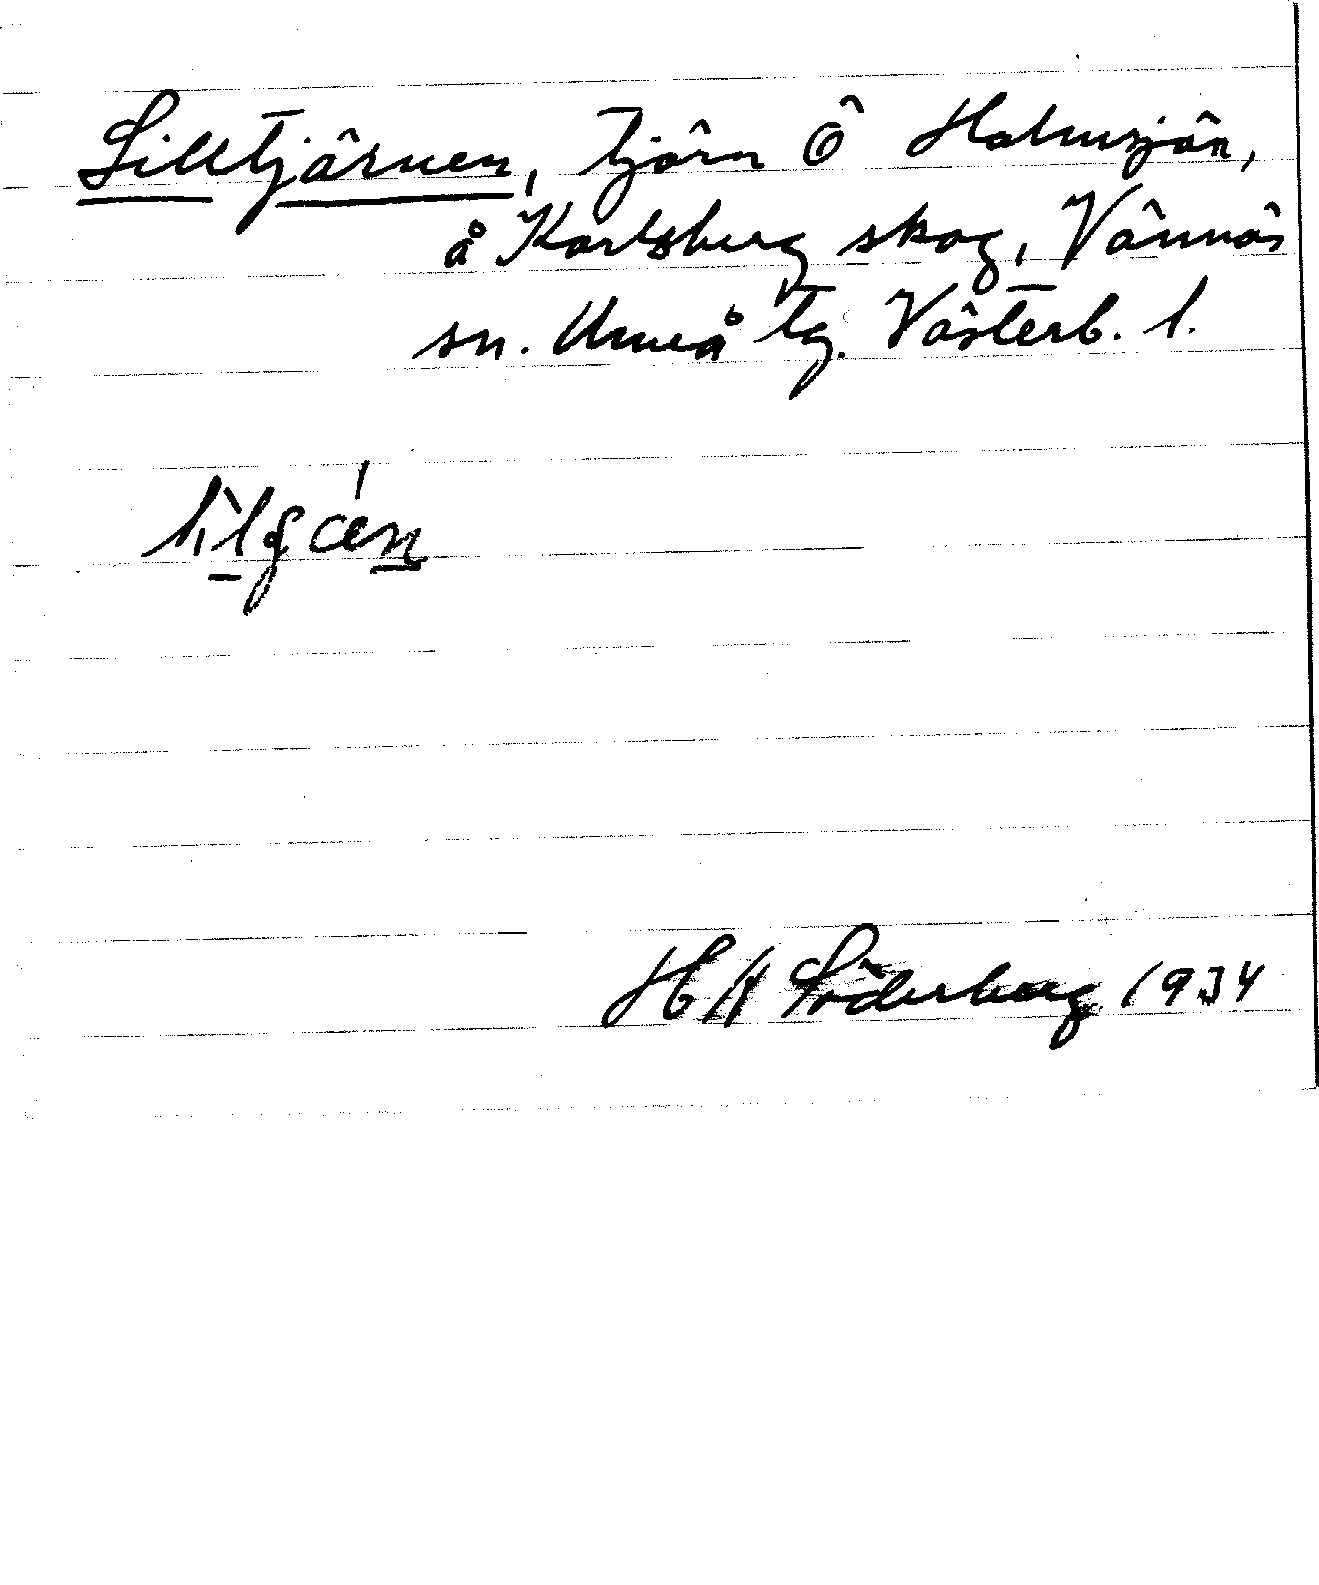 Lilltjärnen, tjärn Ö Holmsjön,
å Karlsberg skog, Vännäs
sn. Umeå tg. Västerb. l.
H A Söderberg 1934